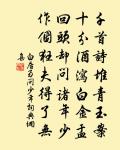 千首詩堆青玉案
十分酒瀉白金盂
回頭卻問諸年少
作個狂夫得了無
白居易問少年詩典雅
集